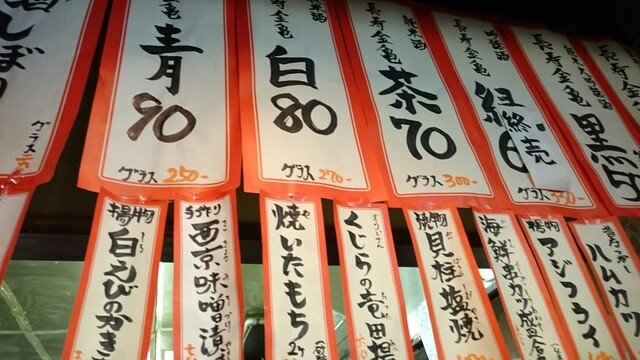 しぼり
グラス
長寿金亀
青
90
グラス 250-
純米酒
長寿金亀
白
80
グラス 270-
純米酒
長寿金亀
茶
70
グラス 300-
吟醸酒
長寿金亀
終売
グラス 350-
長寿金亀
黒
長寿金
揚物
白えびのかき
手作り
西京味噌漬
焼いたもち
2ケ
くじらの竜田揚
焼物
貝柱塩焼
海鮮串カツ盛合
揚物
アジフライ
ハムカツ